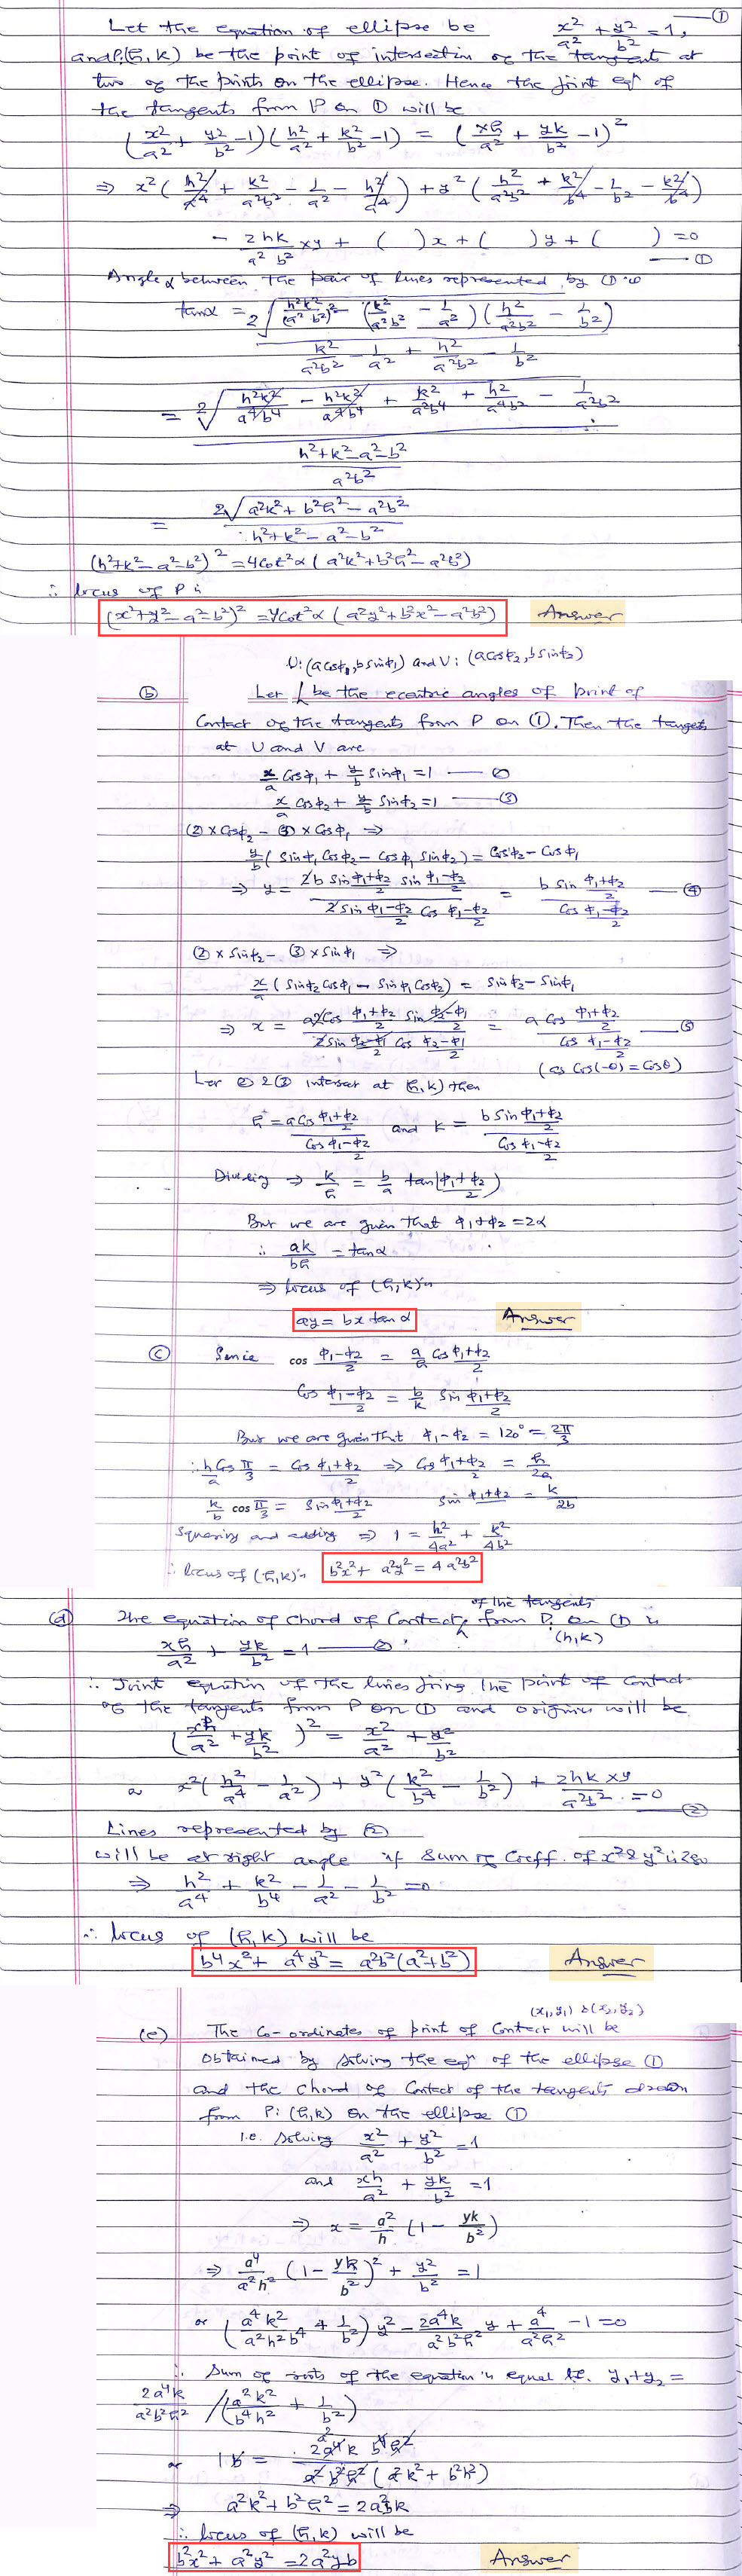 Let the equation of ellipse be x²/a² + y²/b² = 1, —①
and P:(h, k) be the point of intersection of the tangents at
two of the points on the ellipse. Hence the joint eqⁿ of
the tangents from P on ① will be
(x²/a² + y²/b² - 1)(h²/a² + k²/b² - 1) = (xh/a² + yk/b² - 1)²
⇒ x²(h²/a⁴ + k²/a²b² - 1/a² - h²/a⁴) + y²(h²/a²b² + k²/b⁴ - 1/b² - k²/b⁴)
- 2hk/a²b² xy + ( )x + ( )y + ( ) = 0 —①
Angle α between the pair of lines represented by ① is
tanα = 2√(h²k²/(a²b²)² - (k²/a²b² - 1/a²)(h²/a²b² - 1/b²)) / (k²/a²b² - 1/a² + h²/a²b² - 1/b²)
= 2√(h²k²/a⁴b⁴ - h²k²/a⁴b⁴ + k²/a²b⁴ + h²/a⁴b² - 1/a²b²) / ((h²+k²-a²-b²)/a²b²)
= 2√(a²k² + b²h² - a²b²) / (h²+k²-a²-b²)
(h²+k²-a²-b²)² = 4cot²α (a²k²+b²h²-a²b²)
∴ locus of P is
(x²+y²-a²-b²)² = 4cot²α (a²y²+b²x²-a²b²) Answer
U:(acosϕ₁, bsinϕ₁) and V:(acosϕ₂, bsinϕ₂)
(b) Let be the eccentric angles of print of
Contact of the tangents from P on ①. Then the tangets
at U and V are
x/a cosϕ₁ + y/b sinϕ₁ = 1 —②
x/a cosϕ₂ + y/b sinϕ₂ = 1 —③
(2) × cosϕ₂ - ③ × cosϕ₁ ⇒
y/b (sinϕ₁ cosϕ₂ - cosϕ₁ sinϕ₂) = cosϕ₂ - cosϕ₁
⇒ y = 2b sin (ϕ₁+ϕ₂)/2 sin (ϕ₁-ϕ₂)/2 / 2 sin (ϕ₁-ϕ₂)/2 cos (ϕ₁-ϕ₂)/2 = b sin (ϕ₁+ϕ₂)/2 / cos (ϕ₁-ϕ₂)/2 —④
② × sinϕ₂ - ③ × sinϕ₁ ⇒
x/a (sinϕ₂ cosϕ₁ - sinϕ₁ cosϕ₂) = sinϕ₂ - sinϕ₁
⇒ x = a2cos (ϕ₁+ϕ₂)/2 sin (ϕ₂-ϕ₁)/2 / 2 sin (ϕ₂-ϕ₁)/2 cos (ϕ₂-ϕ₁)/2 = a cos (ϕ₁+ϕ₂)/2 / cos (ϕ₁-ϕ₂)/2 —⑤
(as cos(-θ) = cosθ)
Let ② & ③ interset at (h, k) then
h = a cos (ϕ₁+ϕ₂)/2 / cos (ϕ₁-ϕ₂)/2 and k = b sin (ϕ₁+ϕ₂)/2 / cos (ϕ₁-ϕ₂)/2
Dividing ⇒ k/h = b/a tan((ϕ₁+ϕ₂)/2)
But we are given that ϕ₁+ϕ₂ = 2α
∴ ak/bh = tanα
⇒ locus of (h, k) is
ay = bx tan α Answer
(c) Sence cos (ϕ₁-ϕ₂)/2 = a/h cos (ϕ₁+ϕ₂)/2
cos (ϕ₁-ϕ₂)/2 = b/k sin (ϕ₁+ϕ₂)/2
But we are given that ϕ₁-ϕ₂ = 120° = 2π/3
∴ h/a cos π/3 = cos (ϕ₁+ϕ₂)/2 ⇒ cos (ϕ₁+ϕ₂)/2 = h/2a
k/b cos π/3 = sin (ϕ₁+ϕ₂)/2 sin (ϕ₁+ϕ₂)/2 = k/2b
Squaring and adding ⇒ 1 = h²/4a² + k²/4b²
∴ locus of (h, k) is b²x² + a²y² = 4a²b²
(d) The equation of chord of contact of the tangents from P:(h,k) on ① is
xh/a² + yk/b² = 1 —②
∴ Joint equation of the lines joing the point of contact
of the tangents from P on ① and origin will be
(xh/a² + yk/b²)² = x²/a² + y²/b²
or x²(h²/a⁴ - 1/a²) + y²(k²/b⁴ - 1/b²) + 2hk xy/a²b² = 0 —②
Lines represented by ②
will be at right angle if sum of Coeff. of x² & y² is zero
⇒ h²/a⁴ + k²/b⁴ - 1/a² - 1/b² = 0
∴ locus of (h, k) will be
b⁴x² + a⁴y² = a²b²(a²+b²) Answer
(x₁, y₁) & (x₂, y₂)
(e) The Co-ordinates of print of Contect will be
obtained by solving the eqⁿ of the ellipse ①
and the chord of Contact of the tangents drawn
from P:(h, k) on the ellipse ①
i.e. solving x²/a² + y²/b² = 1
and xh/a² + yk/b² = 1
⇒ x = a²/h (1 - yk/b²)
⇒ a⁴/a²h² (1 - yk/b²)² + y²/b² = 1
or (a⁴k²/a²h²b⁴ + 1/b²) y² - 2a⁴k/a²b²h² y + a⁴/a²h² - 1 = 0
∴ Sum of roots of the equation is equal to i.e. y₁+y₂ =
2a⁴k/a²b²h² / (a²k²/b⁴h² + 1/b²)
or b = 2a⁴k b⁴h² / a²b²h² (a²k² + b²h²)
⇒ a²k² + b²h² = 2a²bk
∴ locus of (h, k) will be
b²x² + a²y² = 2a²yb Answer